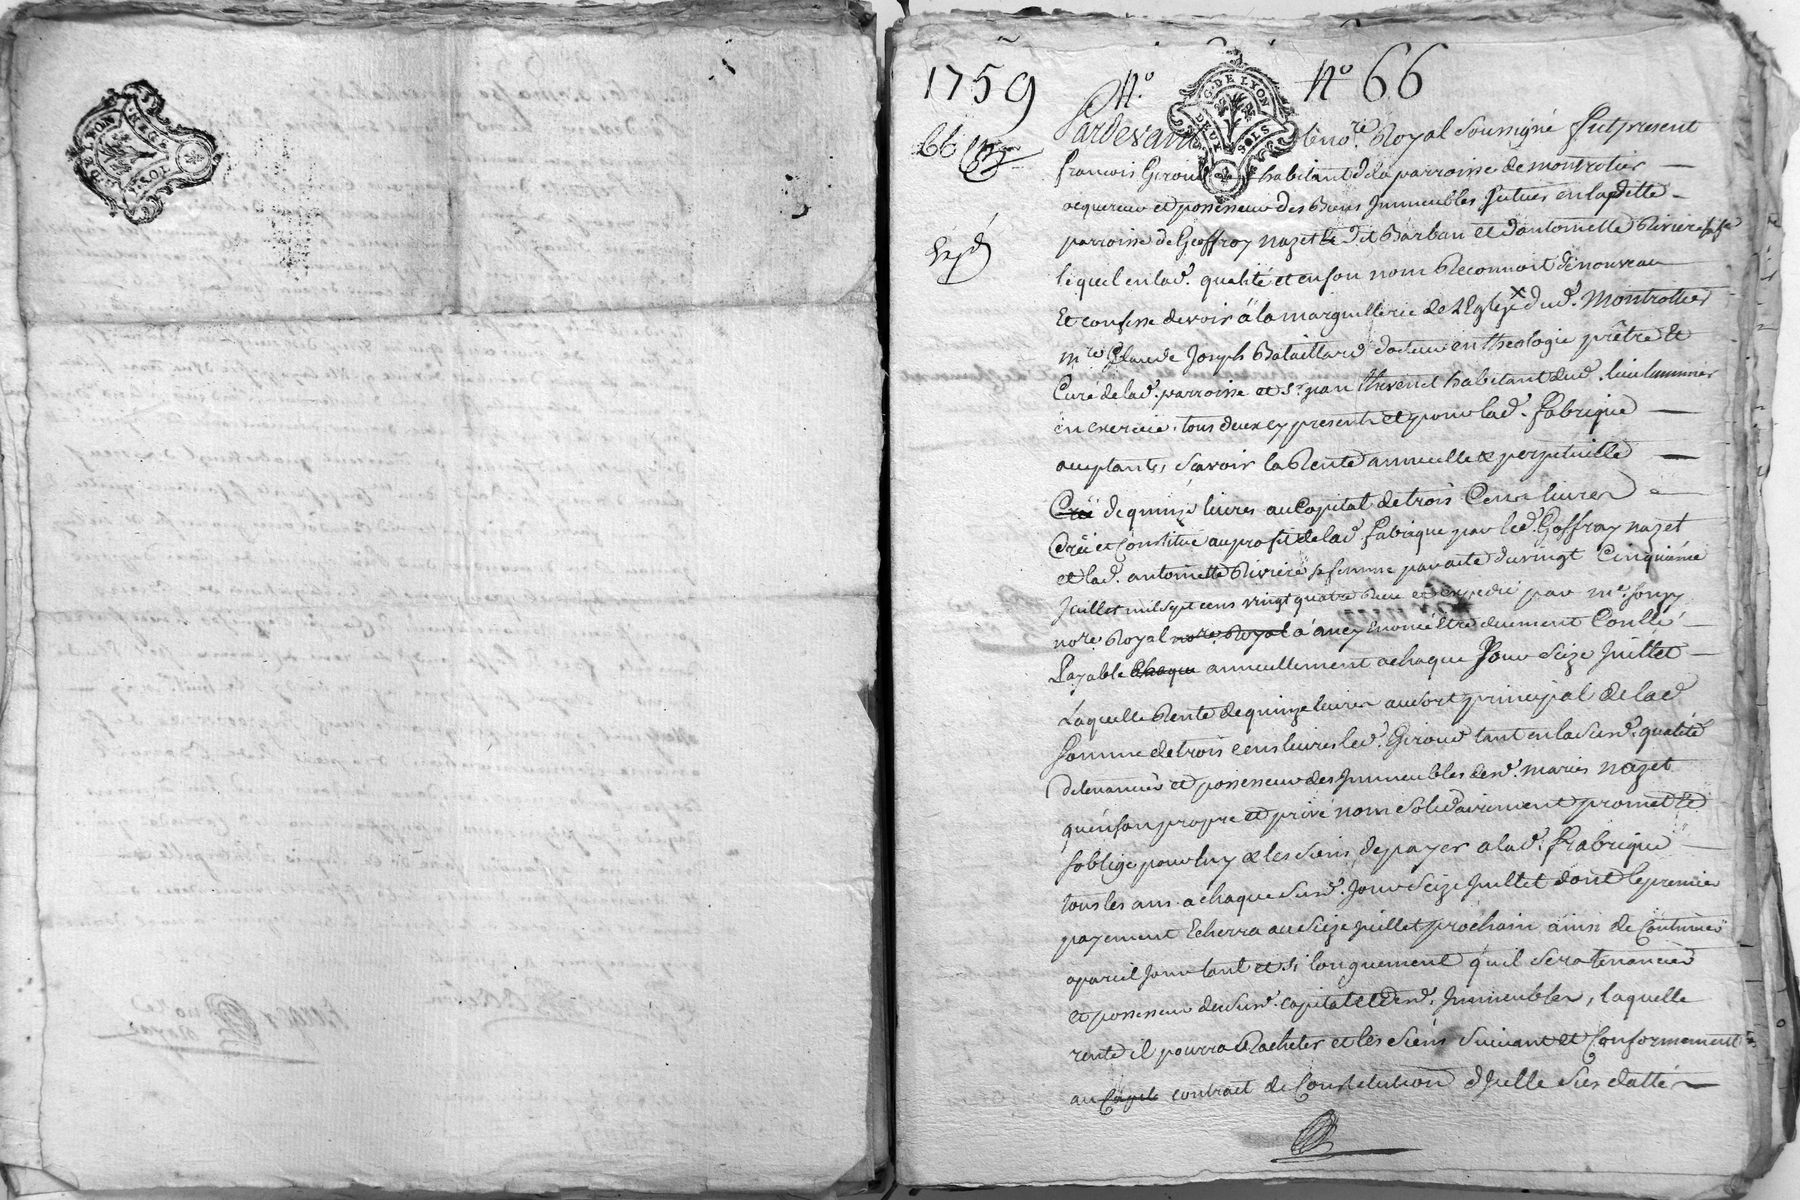 G. DE LYON
DEUX SOLS
1759 N.º Nº 66
66
Pardevant le no.re Royal Soussigné fut present
francois Giroud habitant de la parroisse de montrotier
acquereur et possesseur des Biens Immeubles situés en la ditte
parroisse de Geoffroy nazet dit Barban et d'antoinette Riviere sa fe
lequel en lad. qualité et en son nom Reconnoit de nouveau
Et confesse devoir à la marguillerie de l'Eglise dud. Montrottier
m.re Claude Joseph Bataillard docteur en theologie prêtre et
Curé de lad. parroisse et S.r jean thevenet habitant dud. lieu luminier
en exercice, tous deux cy presents et pour lad. fabrique
acceptants, scavoir la Rente annuelle & perpetuelle
Créé de quinze livres au Capital de trois Cens livres
Créé et Constitué au profit de lad fabrique par led. Goffray nazet
et lad. antoinette Riviere sa femme par acte du vingt Cinquieme
Juillet mil sept cens vingt quatre Reçu et expedié par m.e
no.re Royal no.re Royal à ancy Enoncé Etre duement Conllé
Payable chaque annuellement a chaque Jour Seize Juillet
Laquelle Rente de quinze livres au sort principal de lad
somme de trois cens livres led. Giroud tant en la susd. qualité
detenancier et possesseur des Immeubles desd. mariés nazet
qu'en son propre et privé nom solidairement promet et
s'oblige pour luy & les siens, de payer a lad. fabrique
tous les ans a chaque susd. Jour Seize Juillet dont le premier
payement Echerra au Seize Juillet prochain ainsi de Continuer
a pareil Jour tant et si longuement qu'il sera tenancier
et possesseur du susd. capital et desd. Immeubles, laquelle
rente il pourra Racheter et les siens suivant et Conformement
au contrat de Constitution d'Icelle sus datté